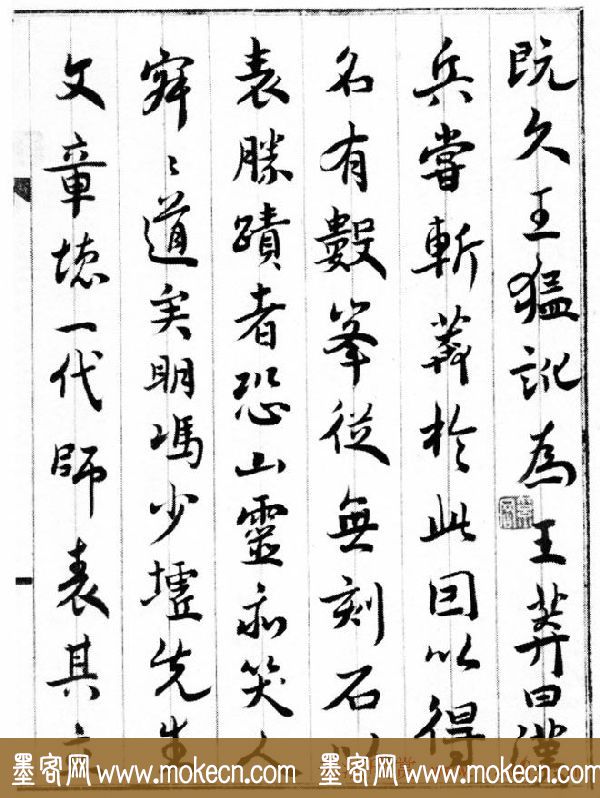 既久王猛訛為王莽曰漢
兵嘗斬莽於此因以得
名有數峯從無刻石以
表勝蹟者恐山靈亦笑人
寂〻道矣明馮少墟先生
文章德一代師表其
墨客网www.mokecn.com 墨客网www.mokecn.com